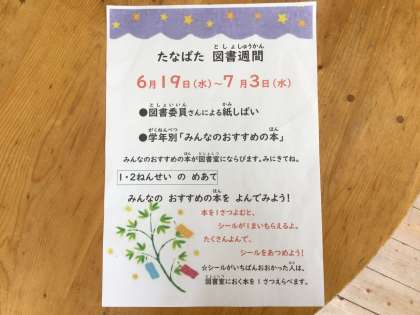 たなばた 図書週間
6月19日(水)～7月3日(水)
●図書委員さんによる紙しばい
●学年別「みんなのおすすめの本」
みんなのおすすめの本が図書室にならびます。みにきてね。
1・2ねんせい の めあて
みんなの おすすめの本を よんでみよう!
本を1さつよむと、
シールが1まいもらえるよ。
たくさんよんで、
シールをあつめよう!
☆シールがいちばんおおかった人は、
図書室におく本を1さつえらべます。